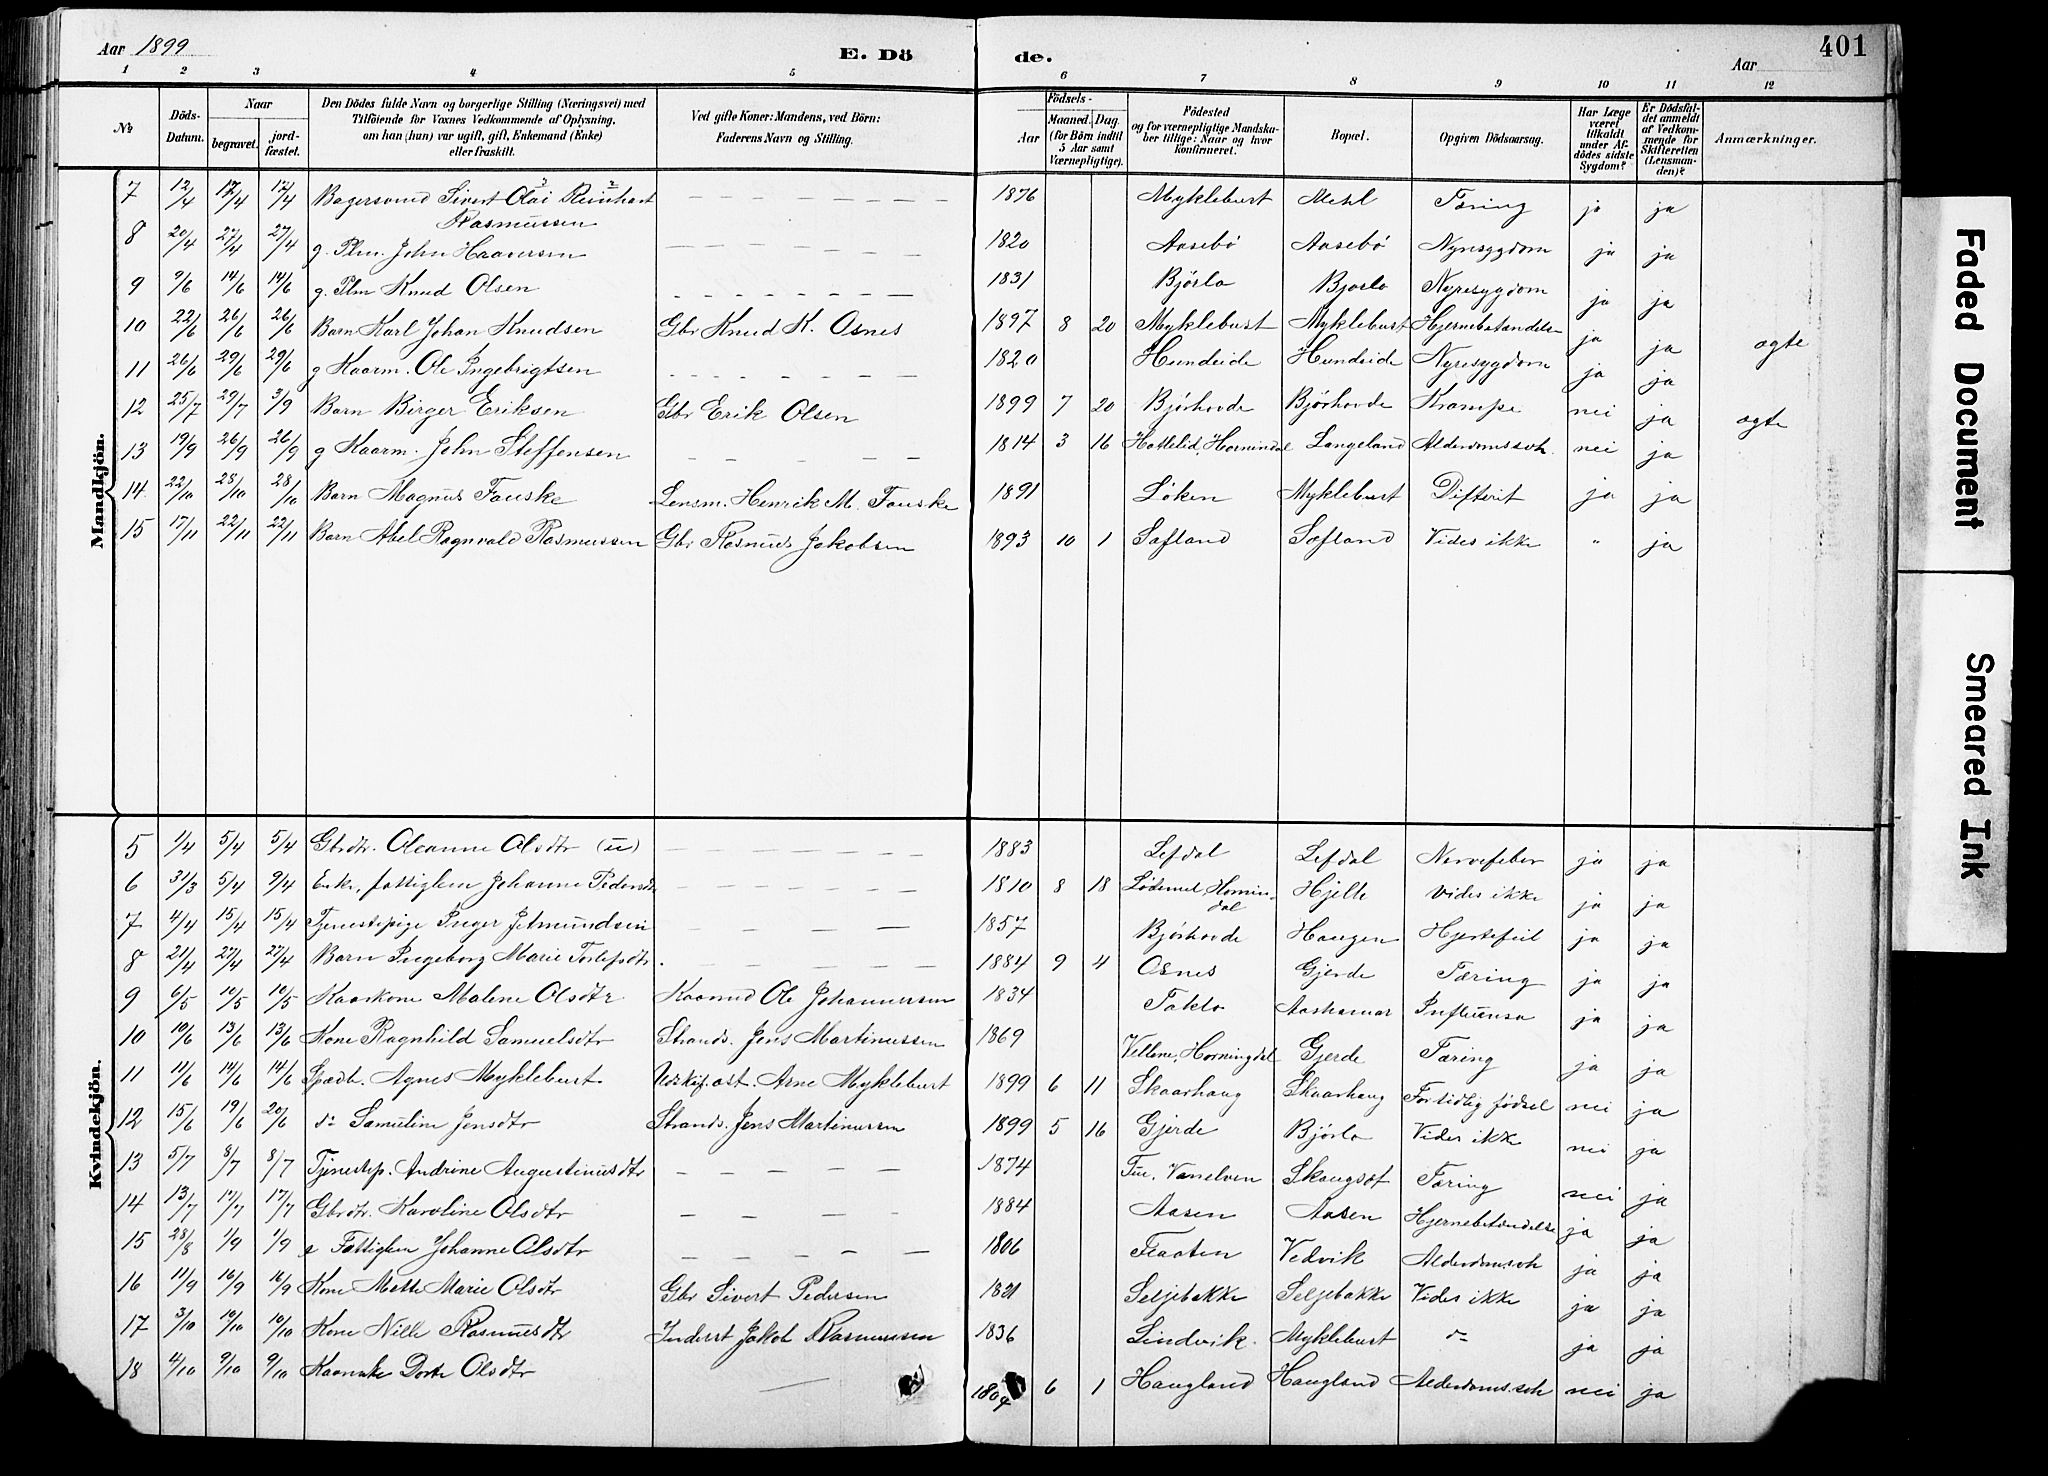 Aar 1899
E. Dö
de.
Aar
401
1 2 3 4 5 6 7 8 9 10 11 12
No
Döds-Datum.
Naar
begravet.
jordfæstet.
Den Dödes fulde Navn og borgerlige Stilling (Næringsvei) med
Tilföiende for Voxnes Vedkommende af Oplysning,
om han (hun) var ugift, gift, Enkemand (Enke)
eller fraskilt.
Ved gifte Koner: Mandens, ved Börn:
Faderens Navn og Stilling.
Födsels-
Aar
Maaned.
Dag.
(for Börn indtil
5 Aar samt
Værnepligtige).
Födested
og for værnepligtige Mandska-
ber tillige: Naar og hvor
konfirmeret.
Bopæl.
Opgiven Dödsaarsag.
Har Læge
været
tilkaldt
under Af-
dödes sidste
Sygdom?
Er Dödsfal-
det anmeldt
af Vedkom-
mende for
Skifteretten
(Lensman-
den)?
Anmærkninger.
Mandkjön.
7 12/4 17/4 17/4 Bagersvend Sivert Olai Reinhart Rasmussen 1876 Myklebust Tæring ja ja
8 20/4 27/4 27/4 g. Plm. John Haaversen 1820 Aasebö Aasebö Nyresygdom ja ja
9 9/6 14/6 14/6 g. Plm Knud Olsen 1831 Bjørlo Bjorlo Nyresygdom ja ja
10 22/6 26/6 26/6 Barn Karl Johan Knudsen Gbr Knud K. Osnes 1897 8 20 Myklebust Myklebust Hjernebetændelse ja ja ægte
11 26/6 29/6 29/6 g Kaarm. Ole Ingebrigtsen 1820 Hundeide Hundeide Nyresygdom ja ja
12 25/7 29/7 3/9 Barn Birger Eriksen Gbr Erik Olsen 1899 7 20 Bjørhovde Bjørhovde Krampe nei ja ægte
13 19/9 26/9 26/9 g Kaarm. John Steffensen 1814 3 16 Hattelid, Hornindal Langeland Alderdomssvh. nei ja
14 22/10 28/10 28/10 Barn Magnus Fauske Lensm. Henrik M. Fauske 1891 Løken Myklebust Difterit ja ja
15 17/11 22/11 22/11 Barn Abel Ragnvald Rasmussen Gbr Rasmus Jakobsen 1893 10 1 Sæfland Sæfland Vides ikke " ja
Kvindekjön.
5 1/4 5/4 5/4 Gbrdtr. Oleanne Olsdtr (u) 1883 Lefdal Lefdal Nervefeber ja ja
6 31/3 5/4 9/4 Enke, fattiglem Johanne Pedersdt 1810 8 18 Lødemel, Hornindal Hjelle vides ikke ja ja
7 4/4 15/4 15/4 Tjenestepige Inger Jetmundsen 1857 Bjørhovde Haugen Hjertefeil ja ja
8 21/4 27/4 27/4 Barn Ingeborg Marie Torlefsdtr. 1884 9 4 Osnes Gjerde Tæring ja ja
9 6/5 10/5 10/5 Kaarkone Malene Olsdtr Kaarmd Ole Johannessen 1834 Taklo Aashamar Influensa ja ja
10 10/6 13/6 13/6 Kone Ragnhild Samuelsdtr Strands. Jens Martinussen 1869 Vellene, Horningdal Gjerde Tæring ja ja
11 11/6 14/6 14/6 Spædb. Agnes Myklebust Udskif.ast. Arne Myklebust 1899 6 11 Skaarhaug Skaarhaug Fortidlig födsel nei ja
12 15/6 19/6 20/6 do Samuline Jensdtr Strands. Jens Martinussen 1899 5 16 Gjerde Bjørlo Vides ikke nei ja
13 5/7 8/7 8/7 Tjenestep. Andrine Augustinusdtr 1874 Tue, Vanelven Skaugsæt Tæring nei ja
14 13/7 17/7 17/7 Gbrdtr. Karoline Olsdtr 1884 Aasen Aasen Hjernebetændelse ja ja
15 28/8 1/9 1/9 e Fattiglem Johanne Olsdtr 1806 Flaaten Vedvik Alderdomssvh ja ja
16 11/9 16/9 16/9 Kone Mette Marie Olsdtr Gbr Sivert Pedersen 1821 Seljebakke Seljebakke Vides ikke ja ja
17 3/10 10/10 10/10 Kone Nille Rasmusdtr Inderst Jakob Rasmussen 1836 Lindvik. Myklebust do ja ja
18 4/10 9/10 9/10 Kaarenke Dorte Olsdtr 1804 6 1 Haugland Haugland Alderdomssvh nei ja
Faded Document
Smeared Ink